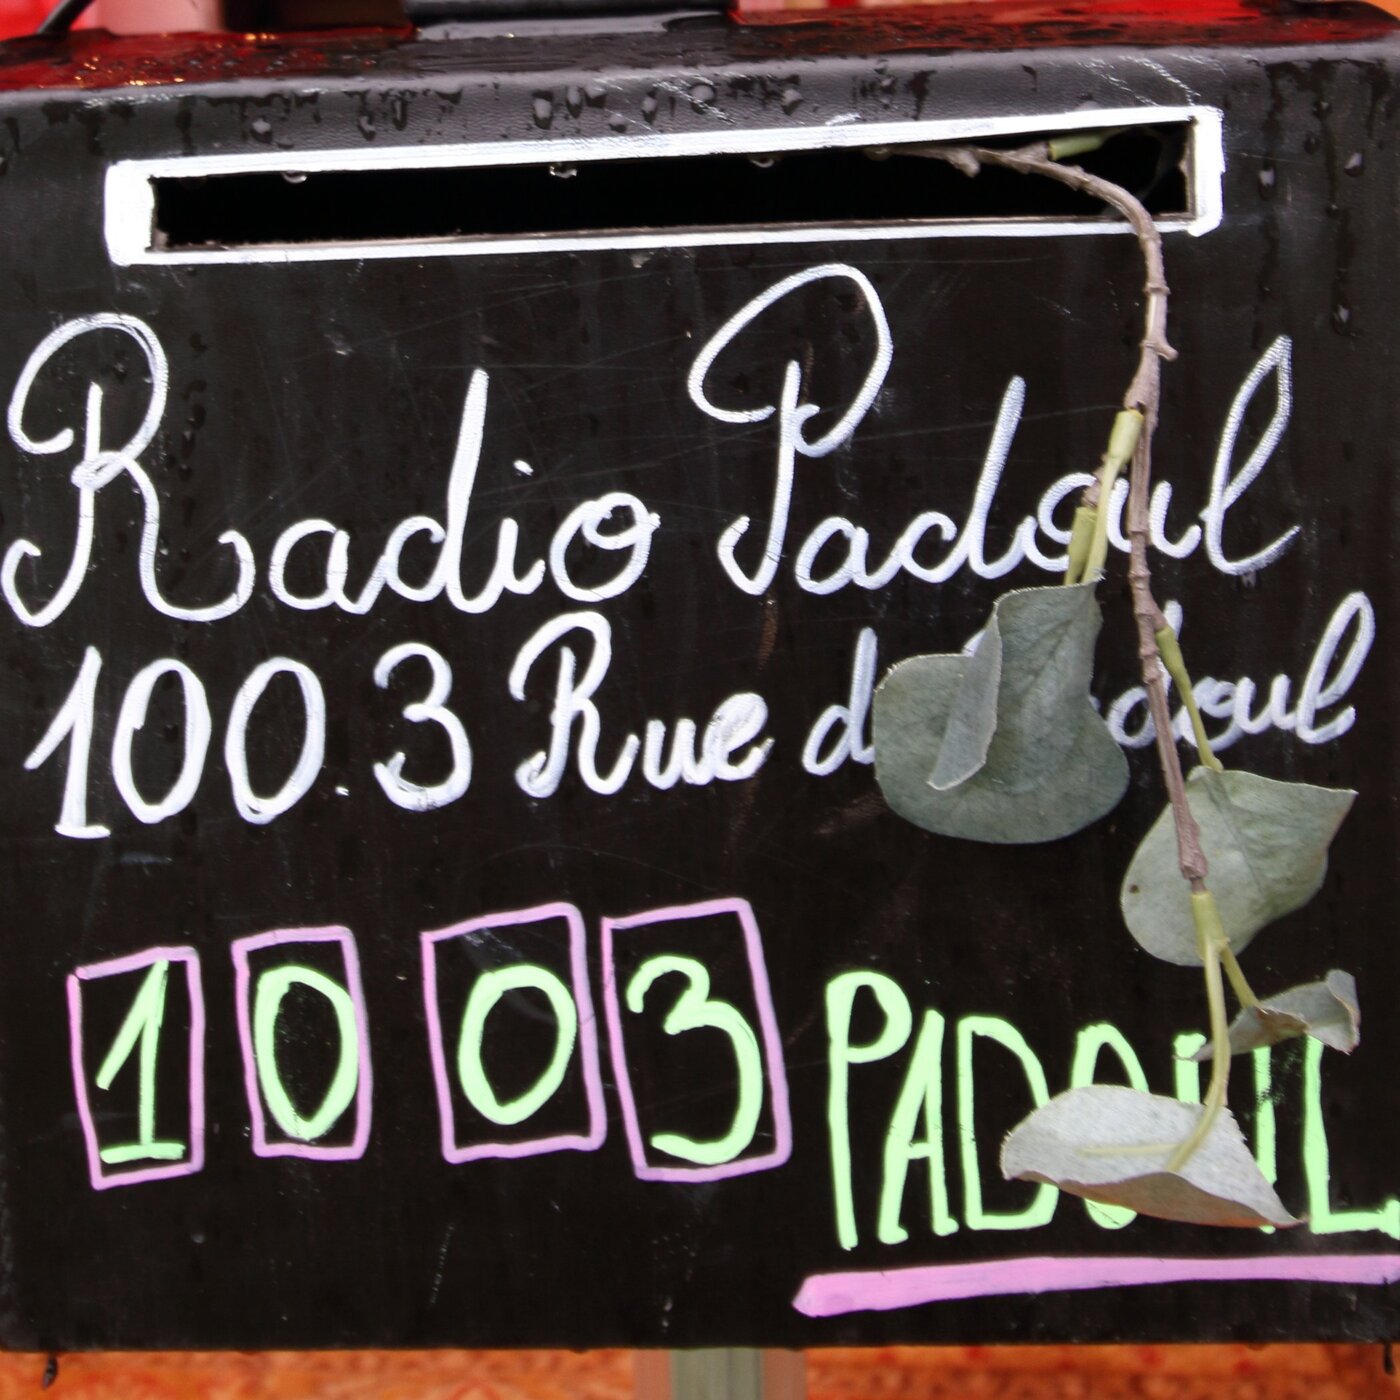 Radio Padoul
100.3 Rue d
1003 PADOUL